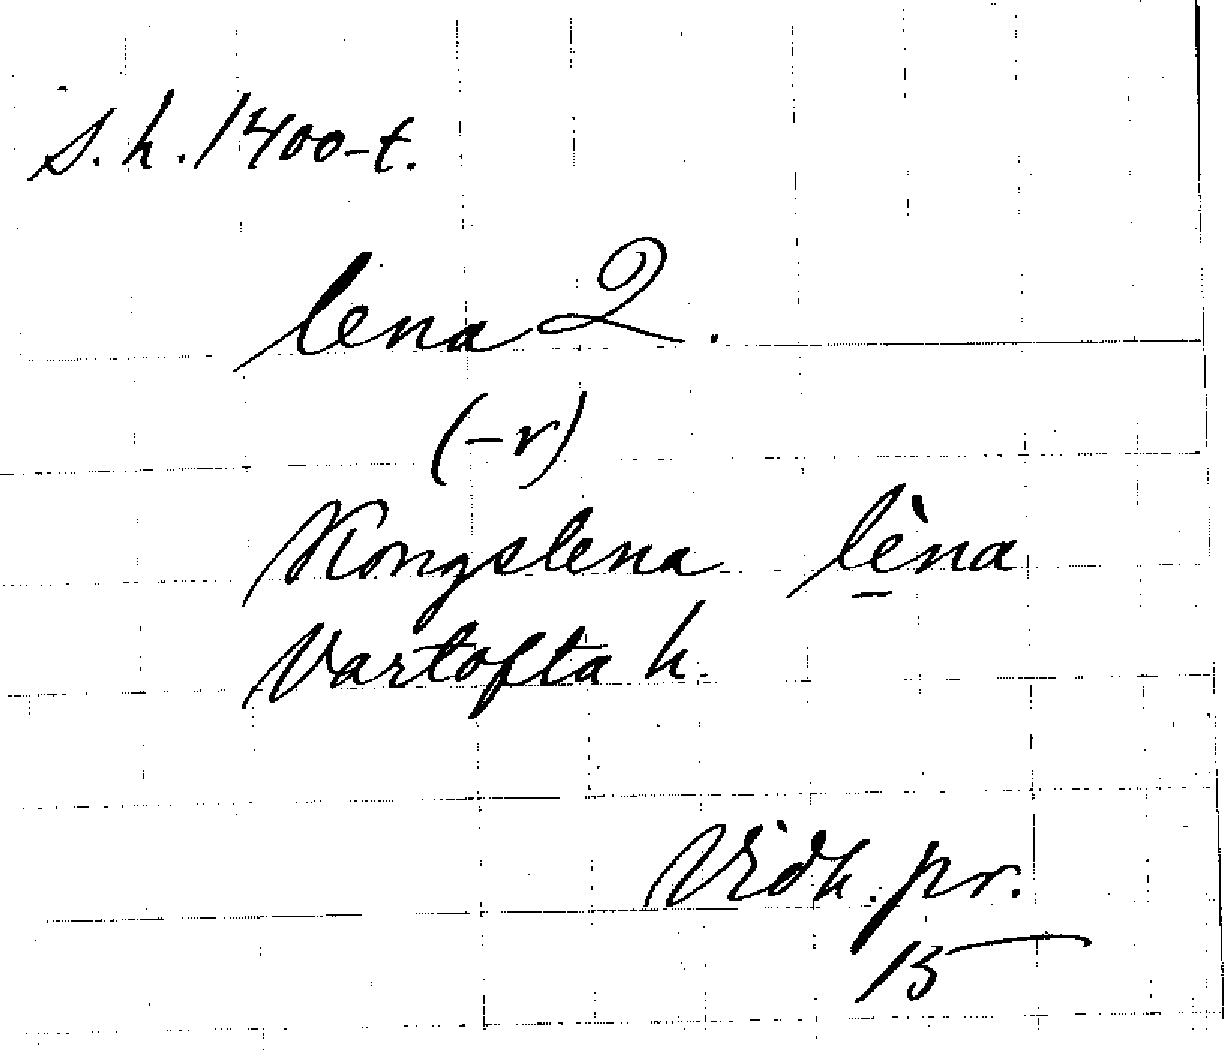 s. h. 1400-t.
lena 2.
(-r)
Kongslena lèna
Vartofta h.
Vidh. pr.
15